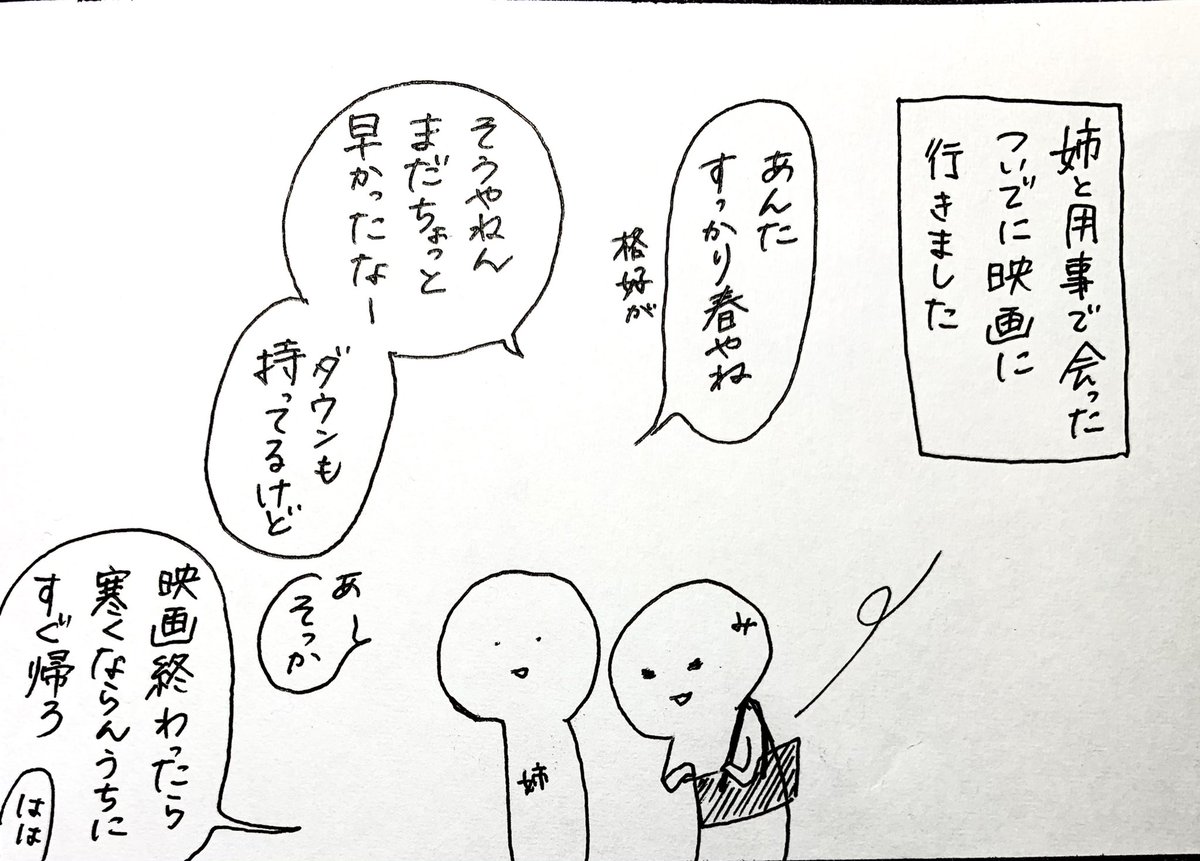 姉と用事で会った
ついでに映画に
行きました
あんた
すっかり春やね
格好が
そうやねん
まだちょっと
早かったなー
ダウンも
持ってるけど
あー
そっか
映画終わったら
寒くならんうちに
すぐ帰ろ
はは
み
姉